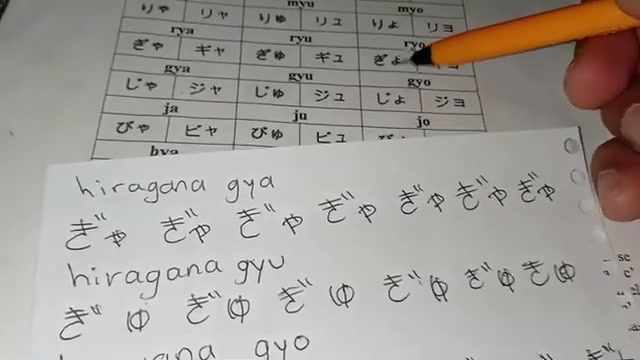 myu myo
りゃ リャ りゅ リュ りょ リョ
rya ryu ryo
ぎゃ ギャ ぎゅ ギュ ぎょ
gya gyu gyo
じゃ ジャ じゅ ジュ じょ ジョ
ja ju jo
びゃ ビャ びゅ ビュ
bya
hiragana gya
ぎゃ ぎゃ ぎゃ ぎゃ ぎゃ ぎゃ ぎゃ
hiragana gyu
ぎゅ ぎゅ ぎゅ ぎゅ ぎゅ きゅ
gyo